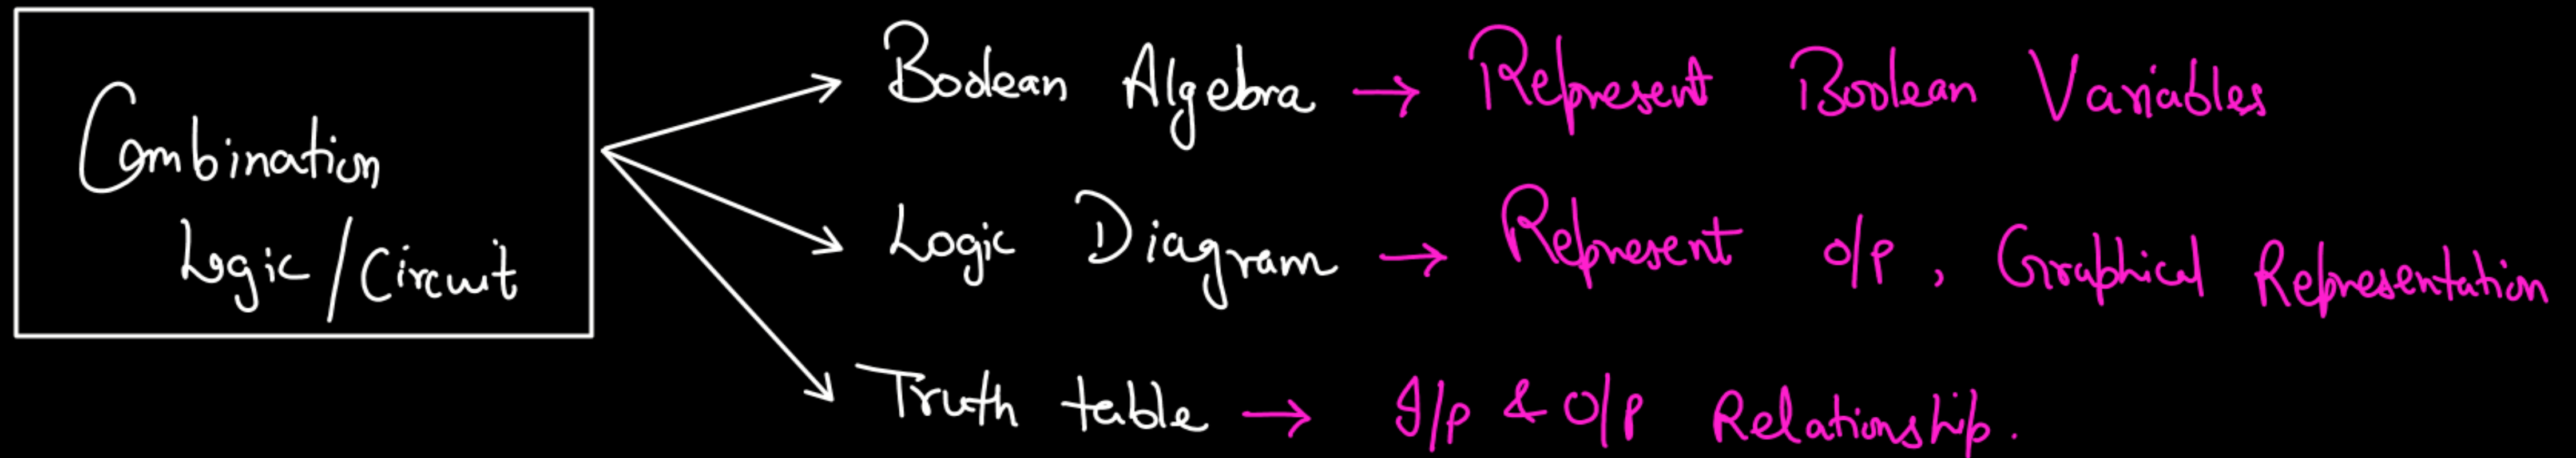 Combination
Logic/Circuit
Boolean Algebra → Represent Boolean Variables
Logic Diagram → Represent o/p, Graphical Representation
Truth table → I/p & O/p Relationship.